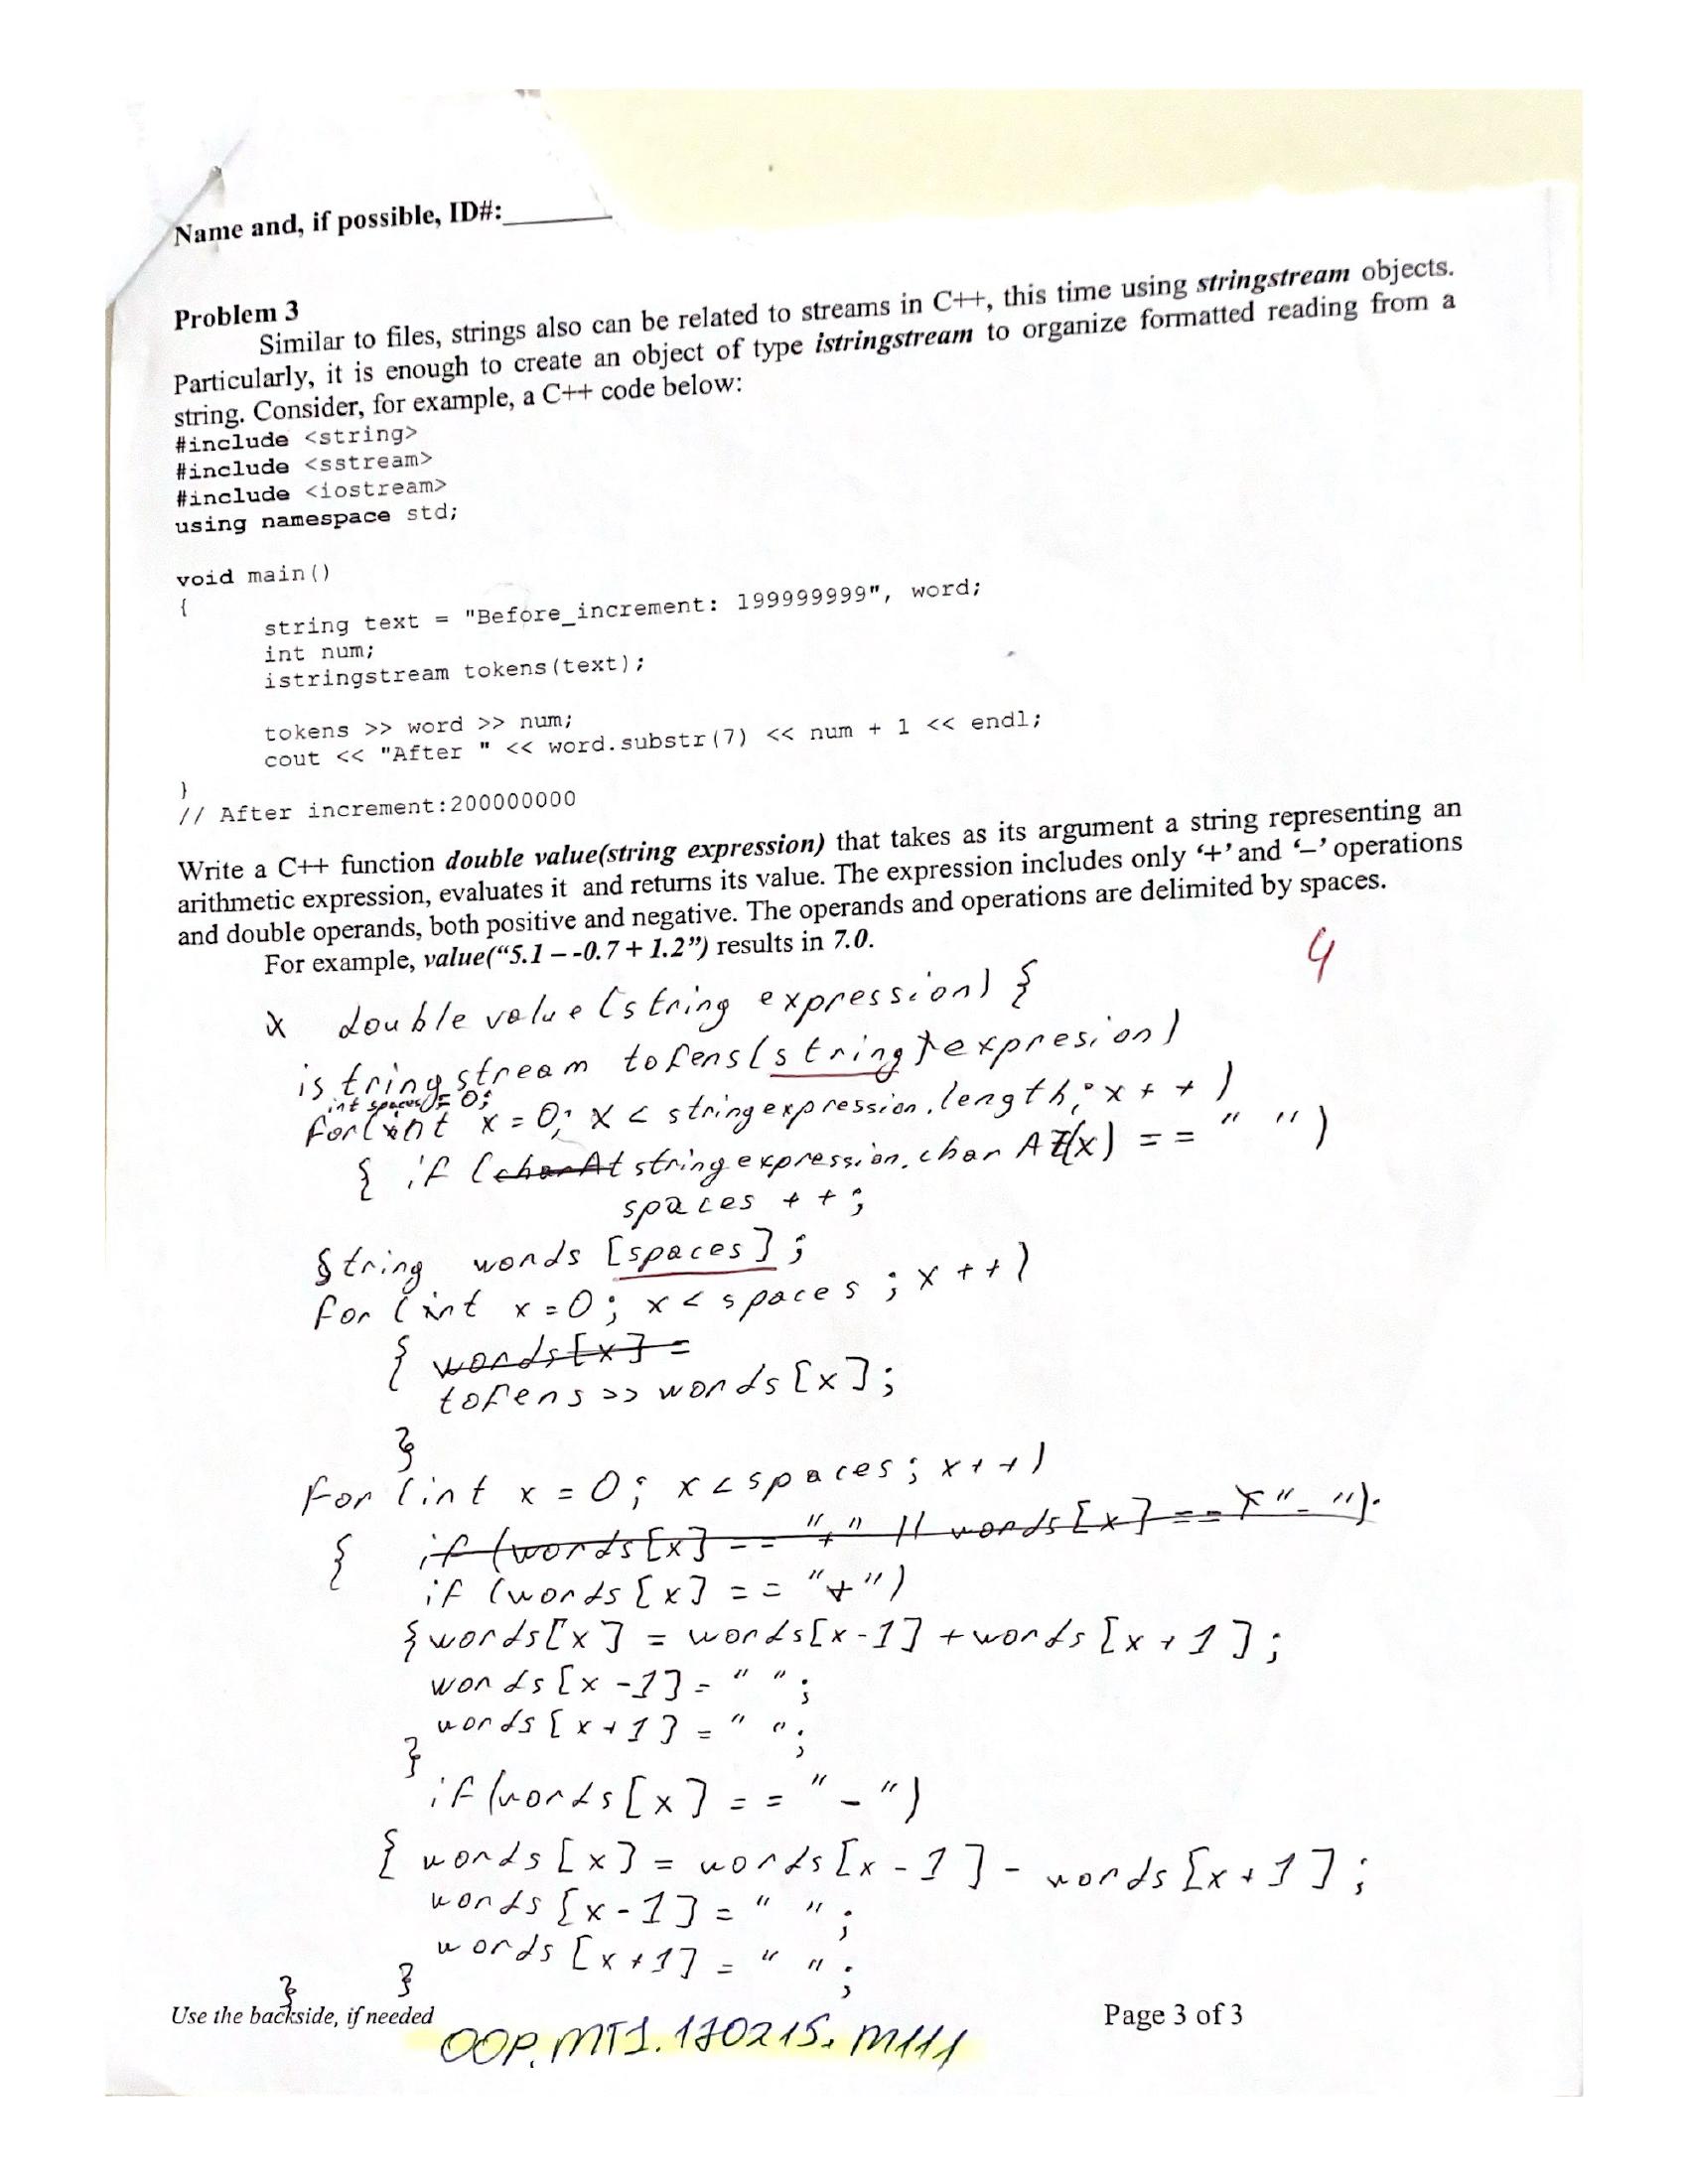 Name and, if possible, ID#:
Problem 3
Similar to files, strings also can be related to streams in C++, this time using stringstream objects.
Particularly, it is enough to create an object of type istringstream to organize formatted reading from a
string. Consider, for example, a C++ code below:
#include <string>
#include <sstream>
#include <iostream>
using namespace std;
void main()
{
string text = "Before_increment: 199999999", word;
int num;
istringstream tokens(text);
tokens >> word >> num;
cout << "After " << word.substr(7) << num + 1 << endl;
}
// After increment:200000000
Write a C++ function double value(string expression) that takes as its argument a string representing an
arithmetic expression, evaluates it and returns its value. The expression includes only ‘+’ and ‘–’ operations
and double operands, both positive and negative. The operands and operations are delimited by spaces.
For example, value(“5.1 – -0.7 + 1.2”) results in 7.0.
4
x double value (string expression) {
istringstream tokens(string expresion)
int spaces = 0;
for(int x = 0; x < stringexpression.length; x++)
{ if (charAt stringexpression.charAt(x) == " ")
spaces ++;
String words [spaces];
for (int x=0; x< spaces; x++)
{ words[x] =
tokens >> words[x];
}
for (int x = 0; x<spaces; x++)
{ if (words[x] == "+" || words[x] == "-")
if (words[x] == "+")
{words[x] = words[x-1] +words[x+1];
words[x-1]= " ";
words[x+1] = " ";
}
if(words[x] == "-")
{ words[x] = words[x-1] - words[x+1];
words[x-1] = " ";
words[x+1] = " ";
} }
Use the backside, if needed
Page 3 of 3
OOP.MT1.170215.M111